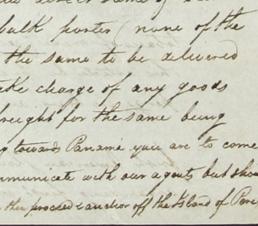 bulk porter (none of the
the same to be delivered
take charge of any goods
freight for the same being
towards Panamá you are to come
communicate with our agents but shou
then proceed & anchor off the Island of Peri